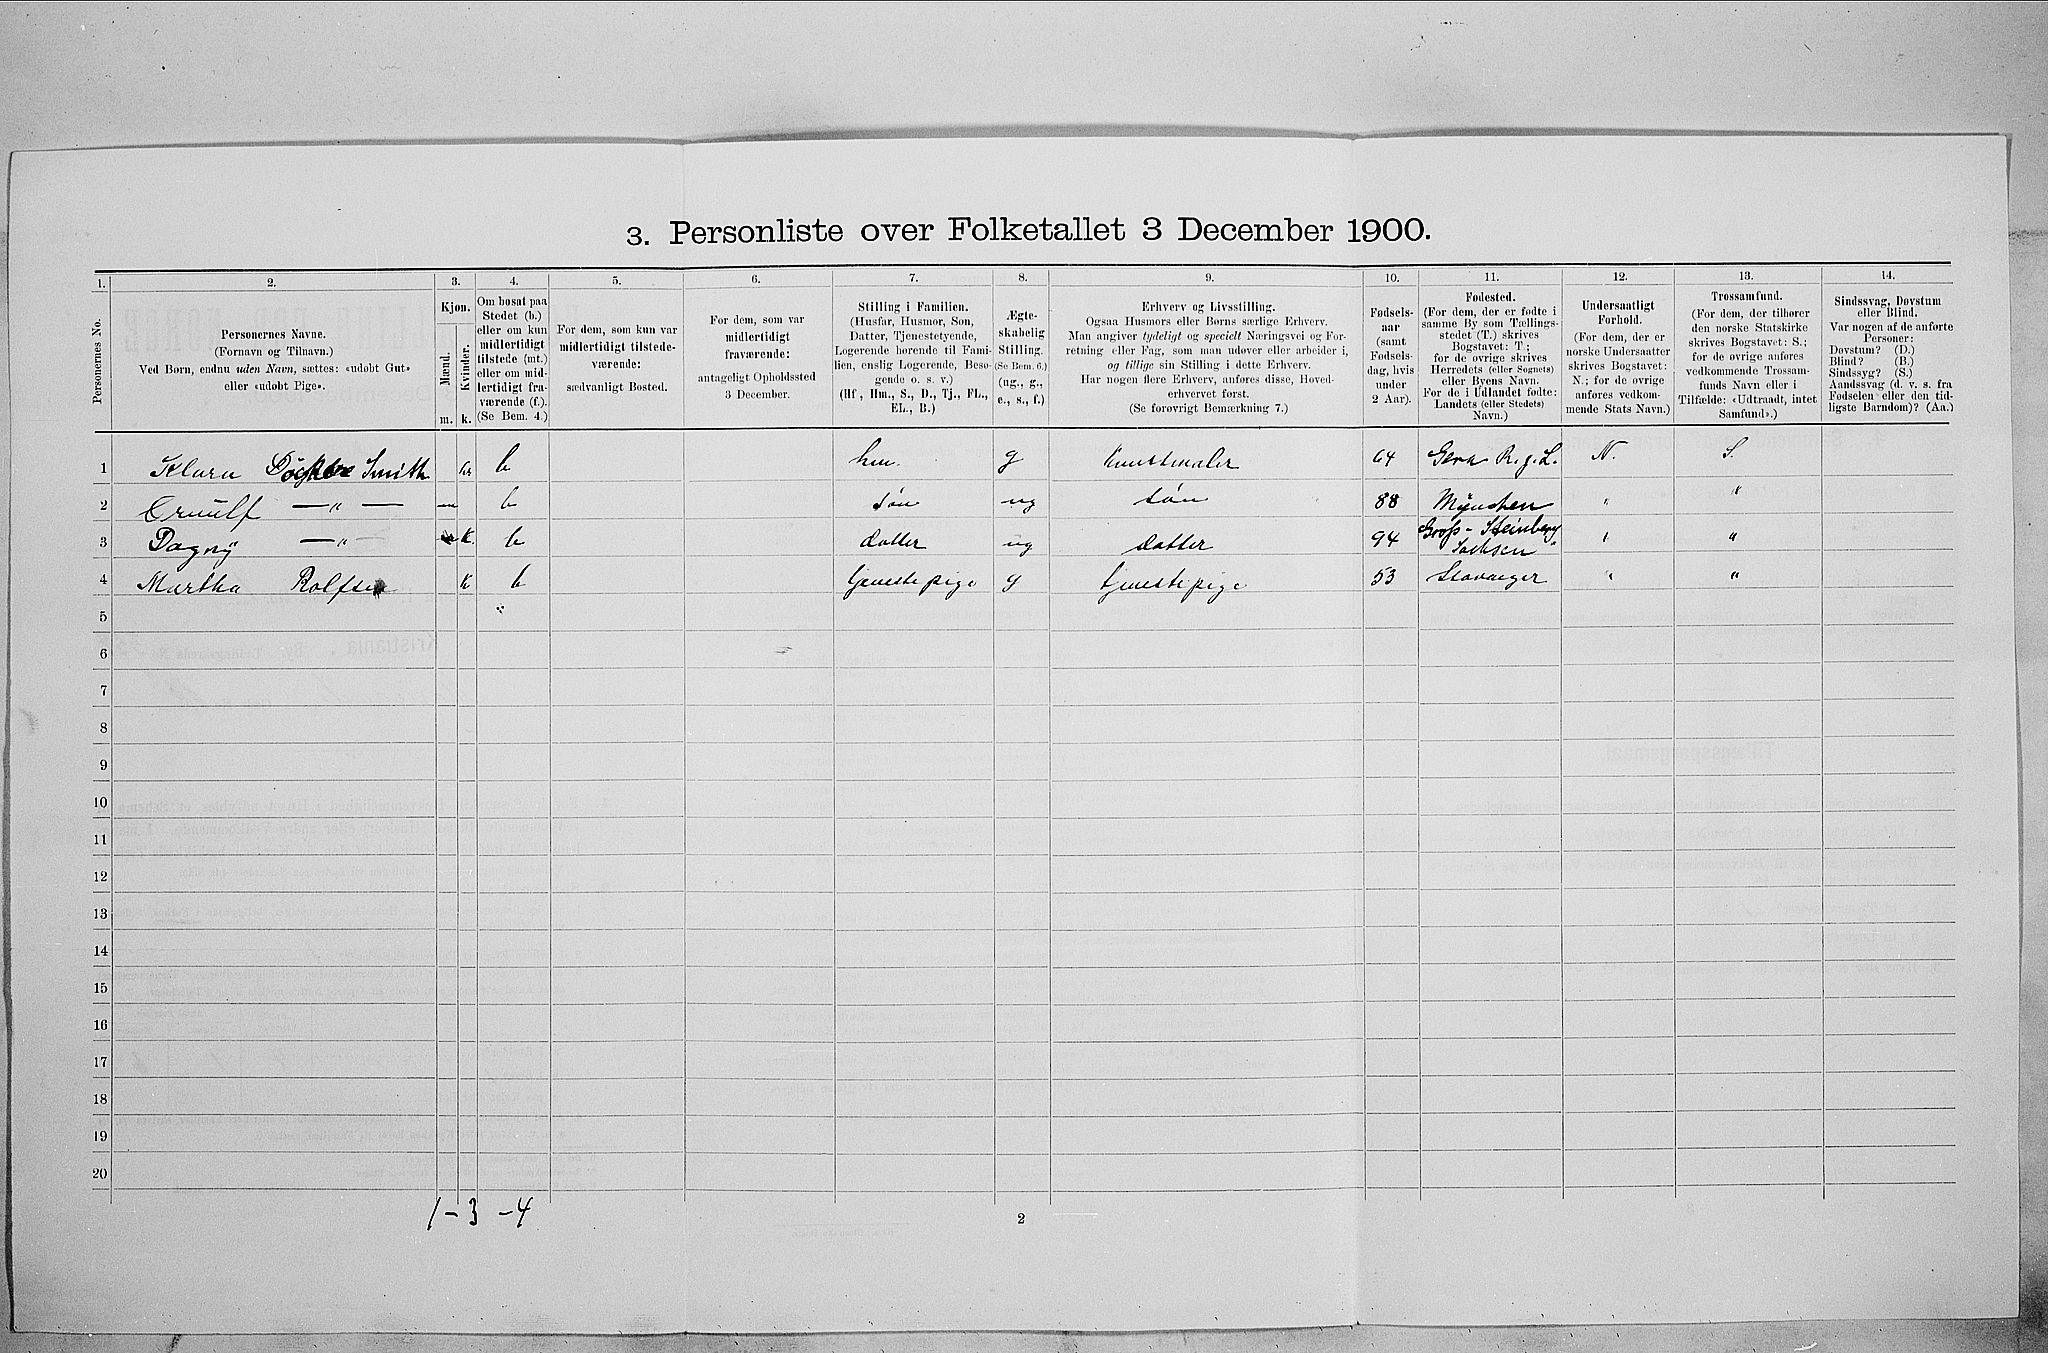 3. Personliste over Folketallet 3 December 1900.
1. 2. 3. 4. 5. 6. 7. 8. 9. 10. 11. 12. 13. 14.
Personernes No.
Personernes Navne.
(Fornavn og Tilnavn.)
Ved Børn, endnu uden Navn, sættes: «udøbt Gut»
eller «udøbt Pige».
Kjøn.
Mænd.
Kvinder.
m. k.
Om bosat paa
Stedet (b.)
eller om kun
midlertidigt
tilstede (mt.)
eller om mid-
lertidigt fra-
værende (f.).
(Se Bem. 4.)
For dem, som kun var
midlertidigt tilstede-
værende:
sædvanligt Bosted.
For dem, som var
midlertidigt
fraværende:
antageligt Opholdssted
3 December.
Stilling i Familien.
(Husfar, Husmor, Søn,
Datter, Tjenestetyende,
Logerende hørende til Fami-
lien, enslig Logerende, Besø-
gende o. s. v.)
(Hf, Hm., S., D., Tj., FL.,
EL., B.)
Ægte-
skabelig
Stilling.
(Se Bem. 6.)
(ug., g.,
e., s., f.)
Erhverv og Livsstilling.
Ogsaa Husmors eller Børns særlige Erhverv.
Man angiver tydeligt og specielt Næringsvei og For-
retning eller Fag, som man udøver eller arbeider i,
og tillige sin Stilling i dette Erhverv.
Har nogen flere Erhverv, anføres disse, Hoved-
erhvervet først.
(Se forøvrigt Bemærkning 7.)
Fødsels-
aar
(samt
Fødsels-
dag, hvis
under
2 Aar).
Fødested.
(For dem, der er fødte i
samme By som Tællings-
stedet (T.) skrives
Bogstavet: T;
for de øvrige skrives
Herredets (eller Sognets)
eller Byens Navn.
For de i Udlandet fødte:
Landets (eller Stedets)
Navn.)
Undersaatligt
Forhold.
(For dem, der er
norske Undersaatter
skrives Bogstavet:
N.; for de øvrige
anføres vedkom-
mende Stats Navn.)
Trossamfund.
(For dem, der tilhører
den norske Statskirke
skrives Bogstavet: S.;
for de øvrige anføres
vedkommende Trossam-
funds Navn eller i
Tilfælde: «Udtraadt, intet
Samfund».)
Sindssvag, Døvstum
eller Blind.
Var nogen af de anførte
Personer:
Døvstum? (D.)
Blind? (B.)
Sindssyg? (S.)
Aandssvag (d. v. s. fra
Fødselen eller den tid-
ligste Barndom)? (Aa.)
1 Klara Smith b hm. g Kunstmaler 64 Gera R. j. L. N. S.
2 — „ — m b søn ug søn 88 München „ „
3 Dagny — „ — k. b datter ug datter 94 Groß-Steinberg
Sachsen „ „
4 Martha Rolfsen k b tjenestepige g tjenestepige 53 Stavanger „ „
5
6
7
8
9
10
11
12
13
14
15
16
17
18
19
20
1 - 3 - 4
2